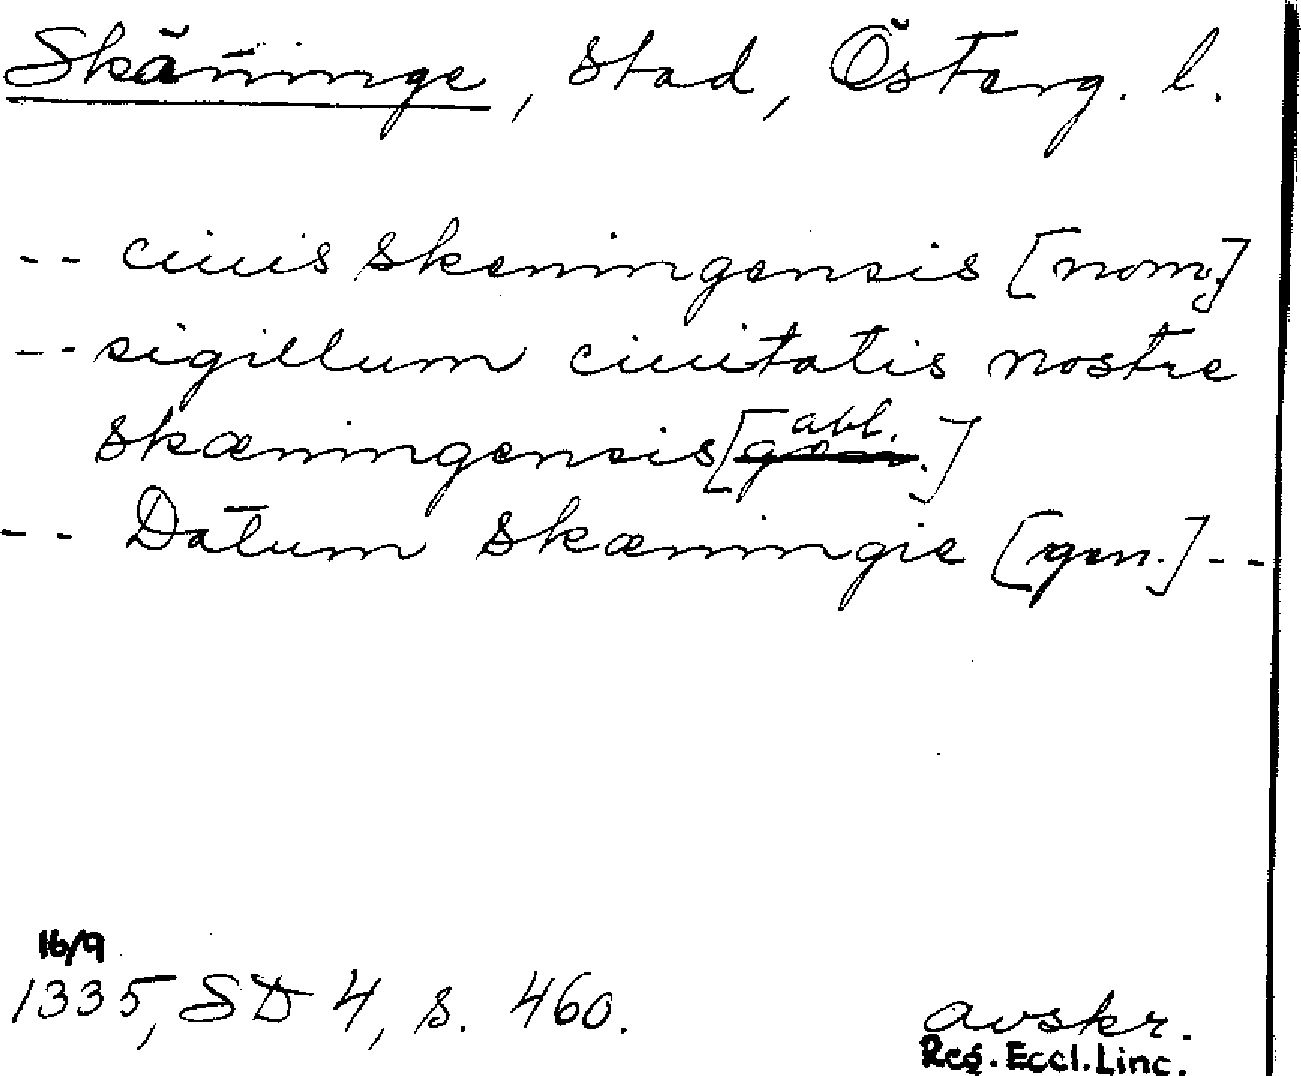 Skänninge, stad, Österg. l.
-- ciuis skeningensis [nom.]
-- sigillum ciuitatis nostre
skæningensis [gen. abl.]
-- Datum skæningie [gen.] --
16/9
1335, SD 4, s. 460.
avskr.
Reg. Eccl. Linc.